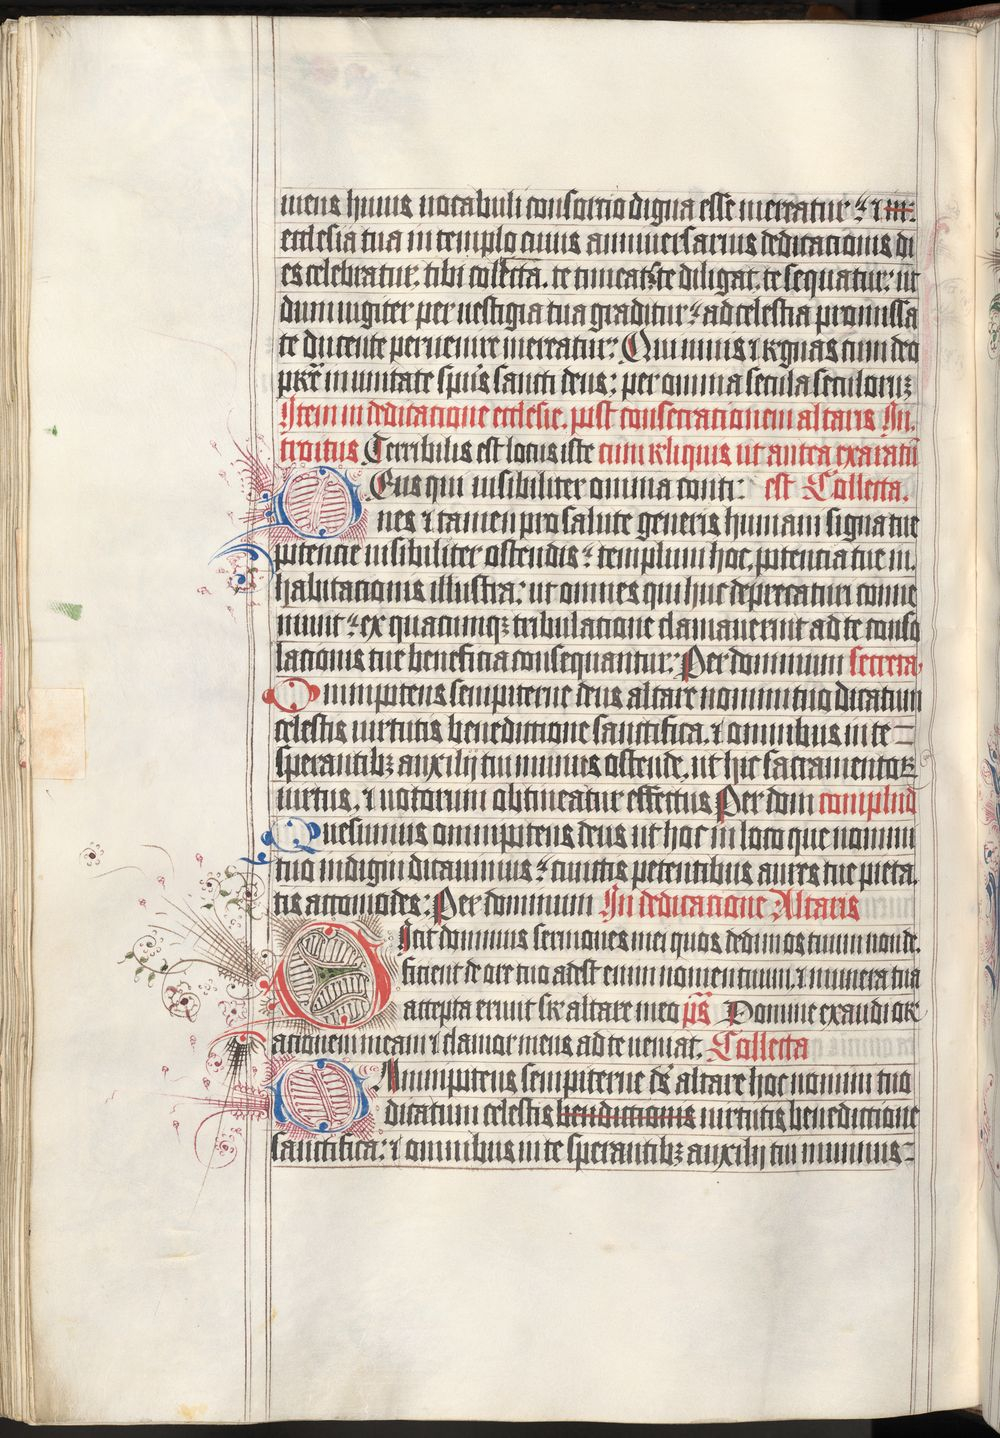 mens huius vocabuli consorcio digna esse mereatur: ⁊ in
ecclesia tua in templo cuius anniuersarius dedicacionis di
es celebratur. tibi collecta. te timeat te diligat. te sequatur: ut
dum iugiter per uestigia tua graditur: ad celestia promissa
te ducente peruenire mereatur: Qui uiuis ⁊ regnas cum deo
pr̄e in unitate sp̄us sancti deus: per omnia secula seculoruꝫ
Item in dedicatione ecclesie. post consecrationem altaris In
troitus Terribilis est locus iste cum reliquis ut antea exaratū
est Collecta.
Deus qui inuisibiliter omnia conti
nes ⁊ tamen pro salute generis humani signa tue
potencie uisibiliter ostendis: templum hoc potencia tue in
habitacionis illustra: ut omnes qui huc deprecaturi conue
niunt: ex quacumqꝫ tribulacione clamauerint ad te conso
lacionis tue beneficia consequantur: Per dominum secreta
Omnipotens sempiterne deus altare nomini tuo dicatum
celestis uirtutis benedictione sanctifica. ⁊ omnibus in te
sperantibꝫ auxilij tui munus ostende. ut hic sacramentoꝝ
uirtus. ⁊ uotorum obtineatur effectus Per dom complend
Quesumus omnipotens deus ut hoc in loco que nomini
tuo indigni dicauimus: cunctis petentibus aures tue pieta
tis accomodes: Per dominum In dedicacione Altaris
Dicit dominus sermones mei quos dedi in os tuum non de
ficient de ore tuo adest enim nomen tuum. ⁊ munera tua
accepta erunt super altare meo p̄s Domine exaudi or
acionem meam ⁊ clamor meus ad te ueniat. Collecta
Omnipotens sempiterne ds̄ altare hoc nomini tuo
dicatum celestis benedictionis uirtutis benedictione
sanctifica: ⁊ omnibus in te sperantibꝫ auxilij tui munus